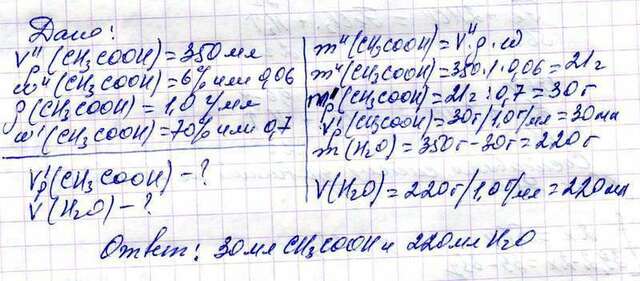 Дано:
V"(CH3COOH)=350мл
ω"(CH3COOH)=6% или 0,06
ρ(CH3COOH)=1,0 г/мл
ω'(CH3COOH)=70% или 0,7
V'р(CH3COOH)-?
V(H2O)-?
m"(CH3COOH)=V"·ρ·ω
m"(CH3COOH)=350·1·0,06=21г
m'р(CH3COOH)=21г:0,7=30г
V'р(CH3COOH)=30г/1,0г/мл=30мл
m(H2O)=350г-30г=220г
V(H2O)=220г/1,0г/мл=220мл
Ответ: 30мл CH3COOH и 220мл H2O